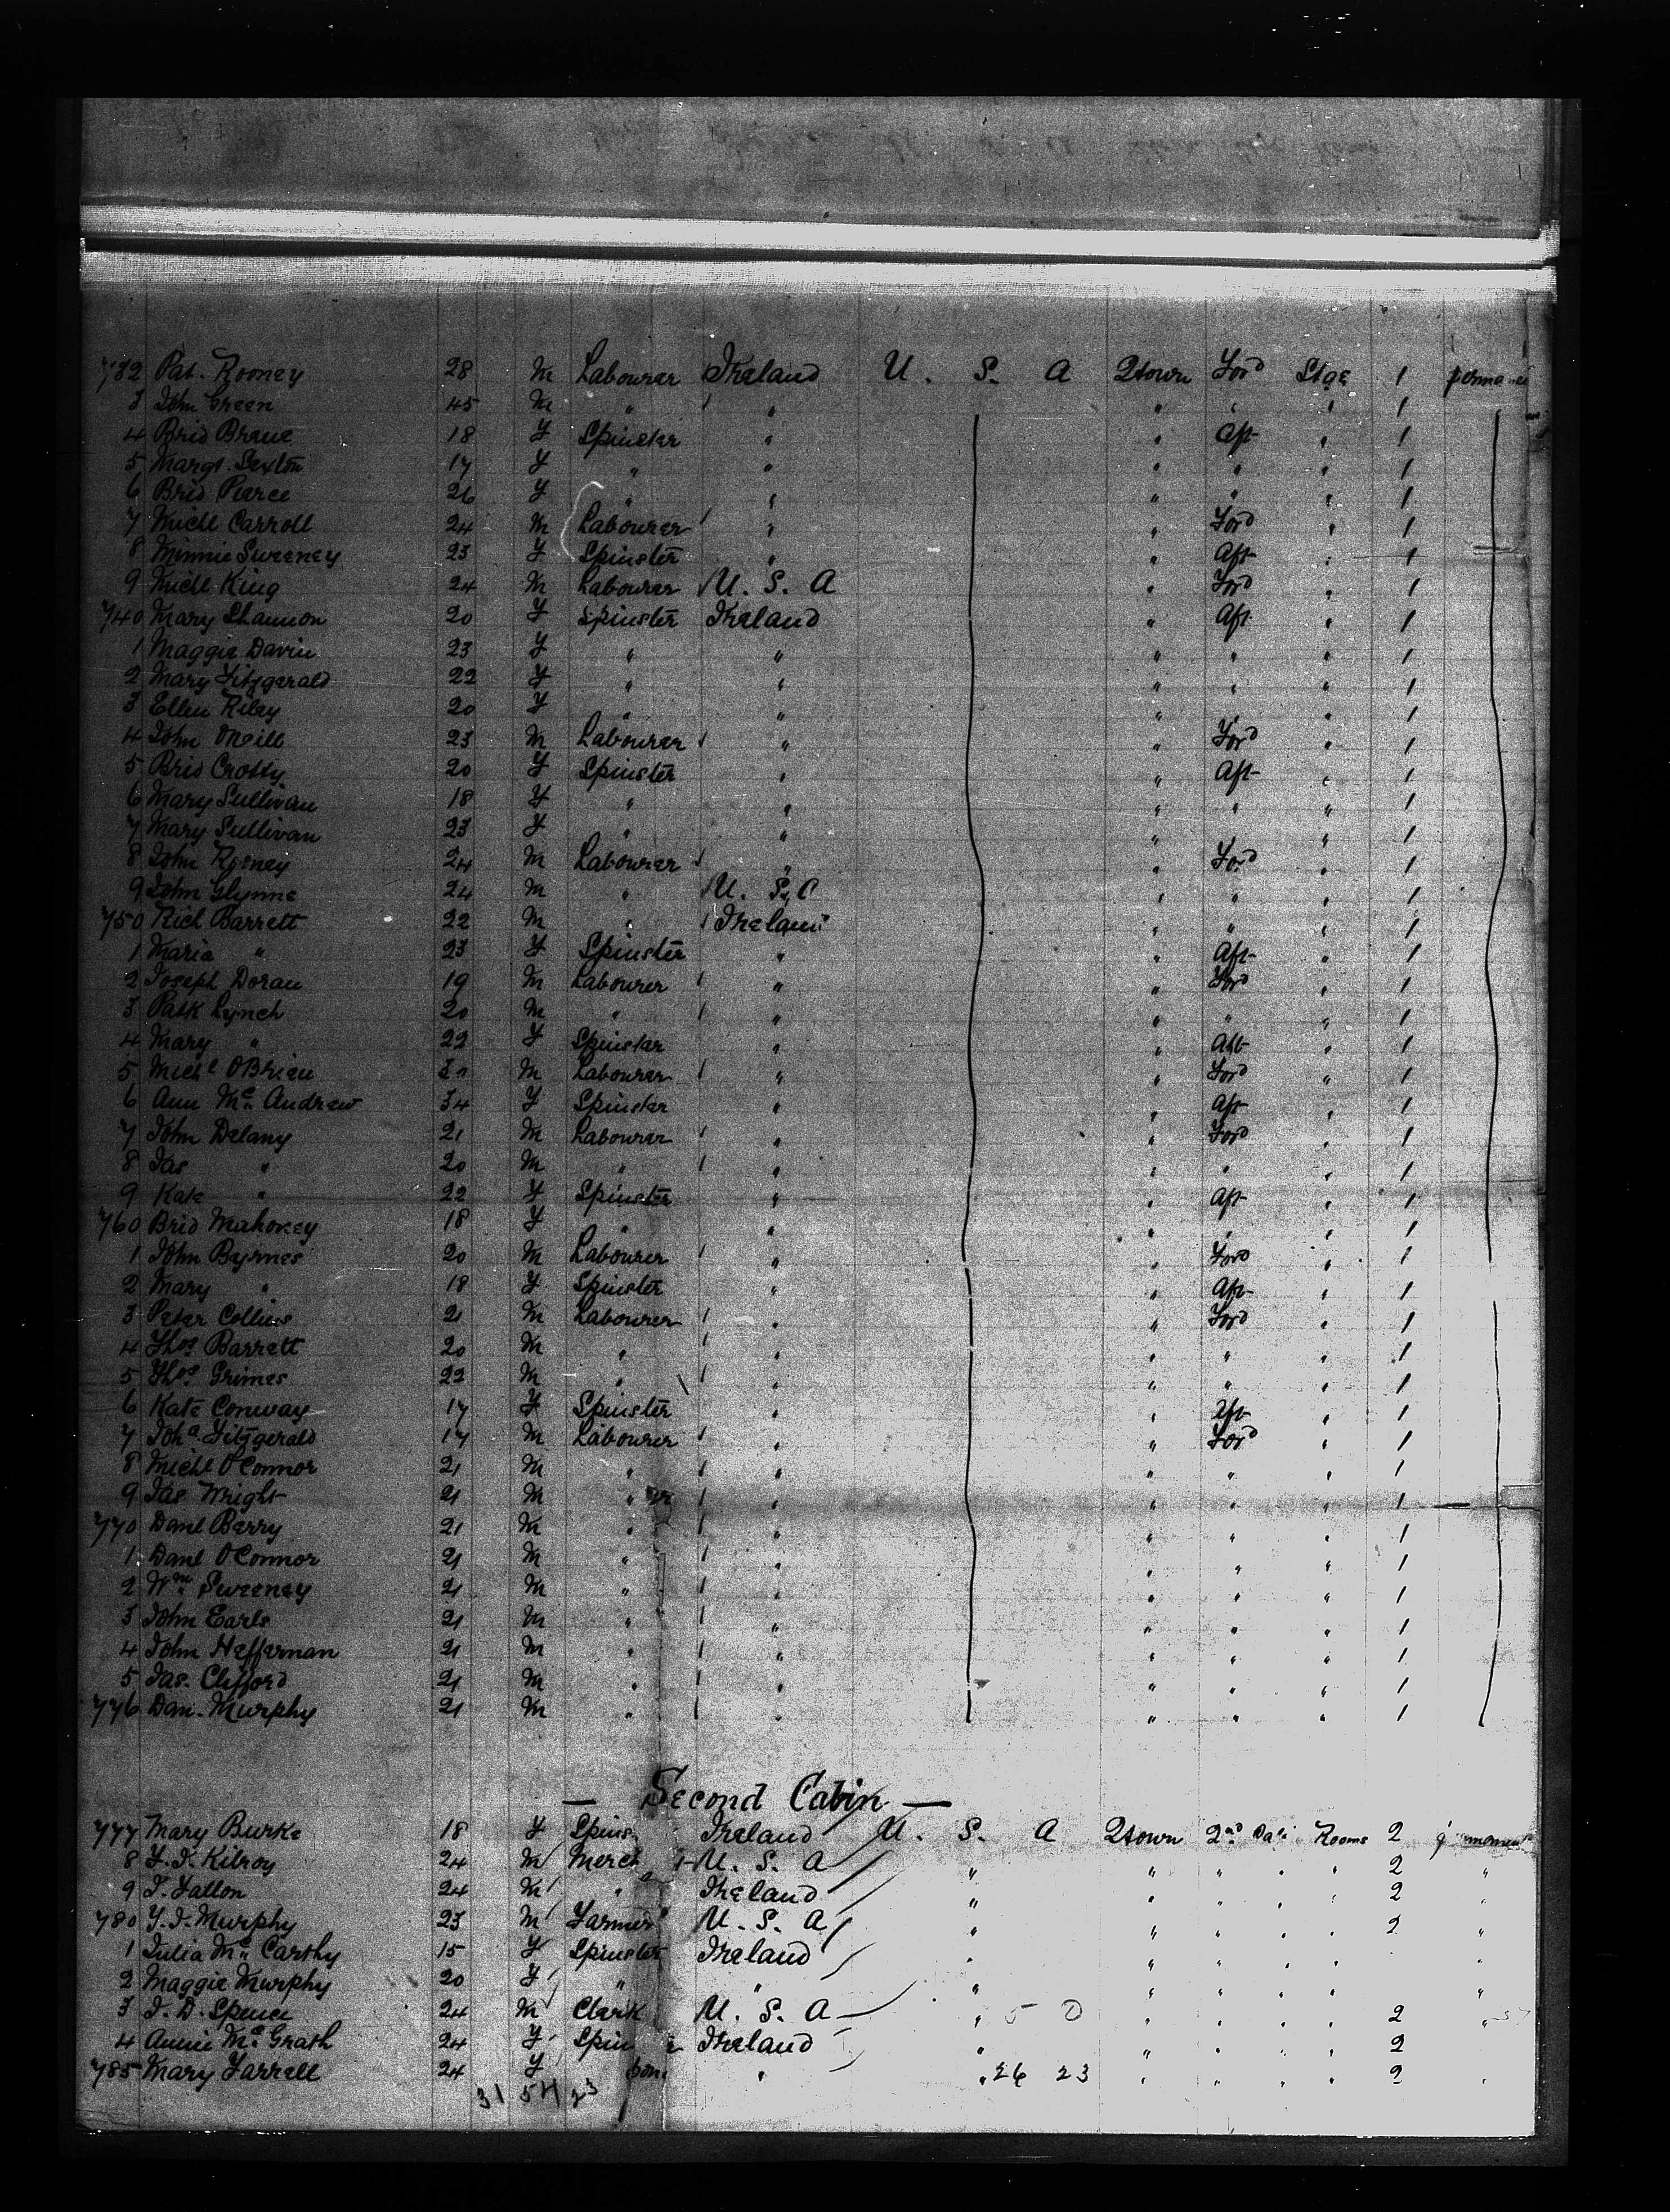 732 Pat. Rooney 28 M Labourer Ireland U. S. A Qtown Ford Stge 1
3 John Green 45 M " " " " " 1
4 Brid Brene 18 F Spinster " " Aft " 1
5 Margt. Sexton 17 F " " " " " 1
6 Brid Pierce 26 F " " " " " 1
7 Michl Carroll 24 M Labourer " " Ford " 1
8 Minnie Sweeney 23 F Spinster " " Aft " 1
9 Michl King 24 M Labourer U. S. A " Ford " 1
740 Mary Shannon 20 F Spinster Ireland " Aft " 1
1 Maggie Davin 23 F " " " " " 1
2 Mary Fitzgerald 22 F " " " " " 1
3 Ellen Riley 20 F " " " " " 1
4 John ONeill 23 M Labourer " " Ford " 1
5 Brid Crotty 20 F Spinster " " Aft " 1
6 Mary Sullivan 18 F " " " " " 1
7 Mary Sullivan 23 F " " " " " 1
8 John Rooney 24 M Labourer " " Ford " 1
9 John Glynne 24 M " U. S. A " " " 1
750 Rich Barrett 22 M " Ireland " " " 1
1 Maria " 23 F Spinster " " Aft " 1
2 Joseph Doran 19 M Labourer " " Ford " 1
3 Patk Lynch 20 M " " " " " 1
4 Mary " 22 F Spinster " " Aft " 1
5 Michl OBrien M Labourer " " Ford " 1
6 Ann Mc Andrew 34 F Spinster " " Aft " 1
7 John Delany 21 M Labourer " " Ford " 1
8 Jas " 20 M " " " " " 1
9 Kate " 22 F Spinster " " Aft " 1
760 Brid Mahoney 18 F " " " " " 1
1 John Byrnes 20 M Labourer " " Ford " 1
2 Mary " 18 F Spinster " " Aft " 1
3 Peter Collins 21 M Labourer " " Ford " 1
4 Thos Barrett 20 M " " " " " 1
5 Thos Grimes 22 M " " " " " 1
6 Kate Conway 17 F Spinster " " Aft " 1
7 Fitzgerald 17 M Labourer " " Ford " 1
8 Michl O'Connor 21 M " " " " " 1
9 Jas Wright 21 M " " " " " 1
770 Danl Barry 21 M " " " " " 1
1 Danl OConnor 21 M " " " " " 1
2 Wm Sweeney 21 M " " " " " 1
3 John Earls 21 M " " " " " 1
4 John Heffernan 21 M " " " " " 1
5 Jas. Clifford 21 M " " " " " 1
776 Dan. Murphy 21 M " " " " " 1
— Second Cabin —
777 Mary Burke 18 F Spins Ireland U. S. A Qtown 2nd Rooms 2
8 F. J. Kilroy 24 M Merct U. S. A " " " " " 2 "
9 J. Fallon 24 M " Ireland " " " " " 2 "
780 F. J. Murphy 23 M Farmer U. S. A " " " " " 2 "
1 Julia Mc Carthy 15 F Spinster Ireland " " " " " "
2 Maggie Murphy 20 F " " " " " " " "
3 J. D. Spence 24 M Clerk U. S. A " 5 0 " " " " 2 "
4 Annie Mc Grath 24 F Spin Ireland " " " " " 2
785 Mary Farrell 24 F " " 26 23 " " " " 2 "
31 54 23